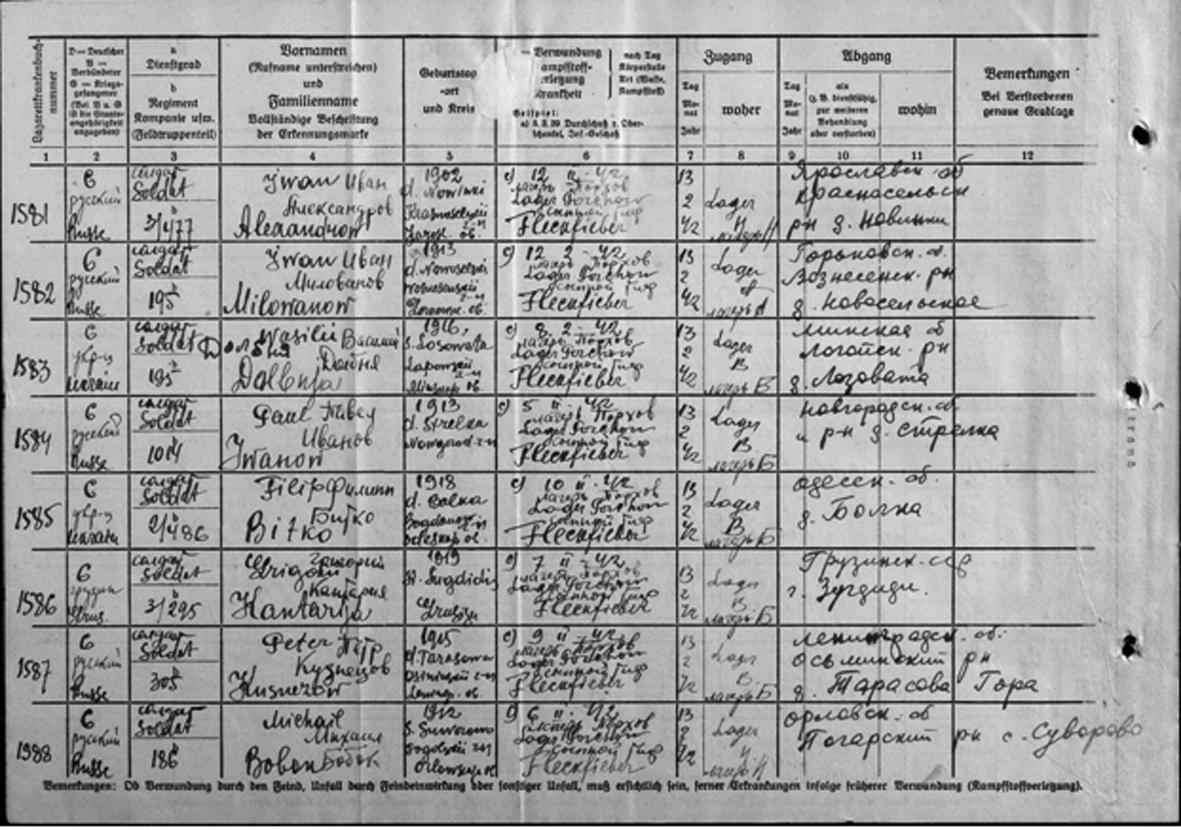 Lazarettkrankenbuch-
nummer
D — Deutscher
V — Verbündeter
G — Kriegs-
gefangener
(Bei V u. G
ist die Staats-
angehörigkeit
angegeben)
a
Dienstgrad
b
Regiment
Kompanie usw.
(Feldtruppenteil)
Vornamen
(Rufname unterstreichen)
und
Familienname
Vollständige Beschriftung
der Erkennungsmarke
Geburtstag
-ort
und Kreis
Verwundung
Kampfstoff-
verletzung
Krankheit
nach Tag
Körperstelle
Art (Waffe,
Kampfstoff)
Beispiel:
a) 8. 8. 39 Durchschuß r. Ober-
schenkel, Inf.-Geschoß
Zugang
Tag
Mo-
nat
Jahr
woher
Abgang
Tag
Mo-
nat
Jahr
als
(z. B. dienstfähig,
zur weiteren
Behandlung
oder verstorben)
wohin
Bemerkungen
Bei Verstorbenen
genaue Grablage
1 2 3 4 5 6 7 8 9 10 11 12
1581
G
русский
Russe
солдат
Soldat
3/477
Iwan Иван
Александров
Alexandrow
1902
d. Nowinki
12 II - 42
лагерь Порхов
Lager Porchow
сыпной тиф
Fleckfieber
13
2
42
Lager
Ярославск. об
красносельск
рн д. Новинки
1582
G
русский
Russe
солдат
Soldat
195
Iwan Иван
Милованов
Milowanow
1913
d. Nowoselskij
12 2 - 42
лагерь Порхов
Lager Porchow
сыпной тиф
Fleckfieber
13
2
42
Lager
Горьковск. об.
Вознесенск. рн
д. Новосельское
1583
G
укр-ц
Ukraine
солдат
Soldat
195
Wasilii Василий
Долбня
Dolbnja
1916
s. Losowata
8. 2 - 42
лагерь Порхов
Lager Porchow
сыпной тиф
Fleckfieber
13
2
42
Lager
В
лагерь Б
минская об
логойск. рн
д. Лозовата
1584
G
русский
Russe
солдат
Soldat
1014
Paul Павел
Иванов
Iwanow
1913
d. Strelka
Nowgorod
5 II - 42
лагерь Порхов
Lager Porchow
сыпной тиф
Fleckfieber
13
2
42
Lager
В
лагерь Б
новгородск. об.
и р-н д. Стрелка
1585
G
укр-ц
Ukraine
солдат
Soldat
2/486
Filip Филипп
Битко
Bitko
1918
d. Balka
10 II - 42
лагерь Порхов
Lager Porchow
сыпной тиф
Fleckfieber
13
2
42
Lager
В
лагерь Б
одесск. об.
д. Балка
1586
G
грузин
солдат
Soldat
3/295
Grigori Григорий
Кантария
Kantarija
1919
Sugdidi
7 II - 42
лагерь Порхов
Lager Porchow
сыпной тиф
Fleckfieber
13
2
42
Lager
В
лагерь Б
Грузинск. сср
г. Зугдиди.
1587
G
русский
Russe
солдат
Soldat
305
Peter Петр
Кузнецов
Kusnezow
1915
d. Tarasowa
9 II - 42
лагерь Порхов
Lager Porchow
сыпной тиф
Fleckfieber
13
2
42
Lager
В
лагерь Б
ленинградск. об.
осьминский рн
д. Тарасова Гора
1588
G
русский
Russe
солдат
Soldat
186
Michail
Михаил
Bobok Бобок
1912
s. Suworowo
6 II - 42
лагерь Порхов
Lager Porchow
сыпной тиф
Fleckfieber
13
2
42
Lager
орловск. об
Погарский рн с. Суворово
Bemerkungen: Ob Verwundung durch den Feind, Unfall durch Feindeinwirkung oder sonstiger Unfall, muß ersichtlich sein, ferner Erkrankungen infolge früherer Verwundung (Kampfstoffverletzung).